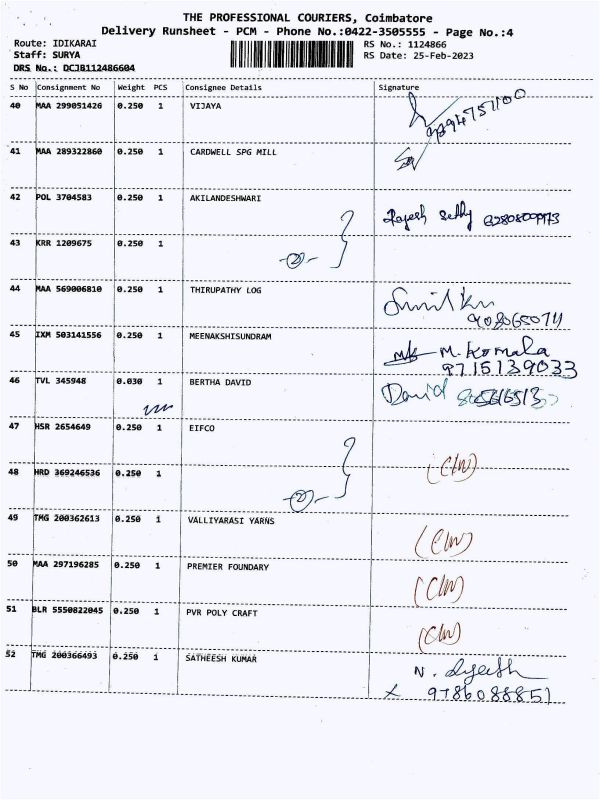 THE PROFESSIONAL COURIERS, Coimbatore
Delivery Runsheet - PCM - Phone No.:0422-3505555 - Page No.:4
Route: IDIKARAI RS No.: 1124866
Staff: SURYA RS Date: 25-Feb-2023
DRS No.: DCJB112486604
S No Consignment No Weight PCS Consignee Details Signature
40 MAA 299051426 0.250 1 VIJAYA
41 MAA 289322860 0.250 1 CARDWELL SPG MILL
42 POL 3704583 0.250 1 AKILANDESHWARI
43 KRR 1209675 0.250 1
(2)
44 MAA 569006810 0.250 1 THIRUPATHY LOG
45 IXM 503141556 0.250 1 MEENAKSHISUNDRAM M. Komala
9715139033
46 TVL 345948 0.030 1 BERTHA DAVID David
47 HSR 2654649 0.250 1 EIFCO
48 HRD 369246536 0.250 1
(2)
49 TMG 200362613 0.250 1 VALLIYARASI YARNS
50 MAA 297196285 0.250 1 PREMIER FOUNDARY
51 BLR 5550822045 0.250 1 PVR POLY CRAFT
52 TMG 200366493 0.250 1 SATHEESH KUMAR
9786088851